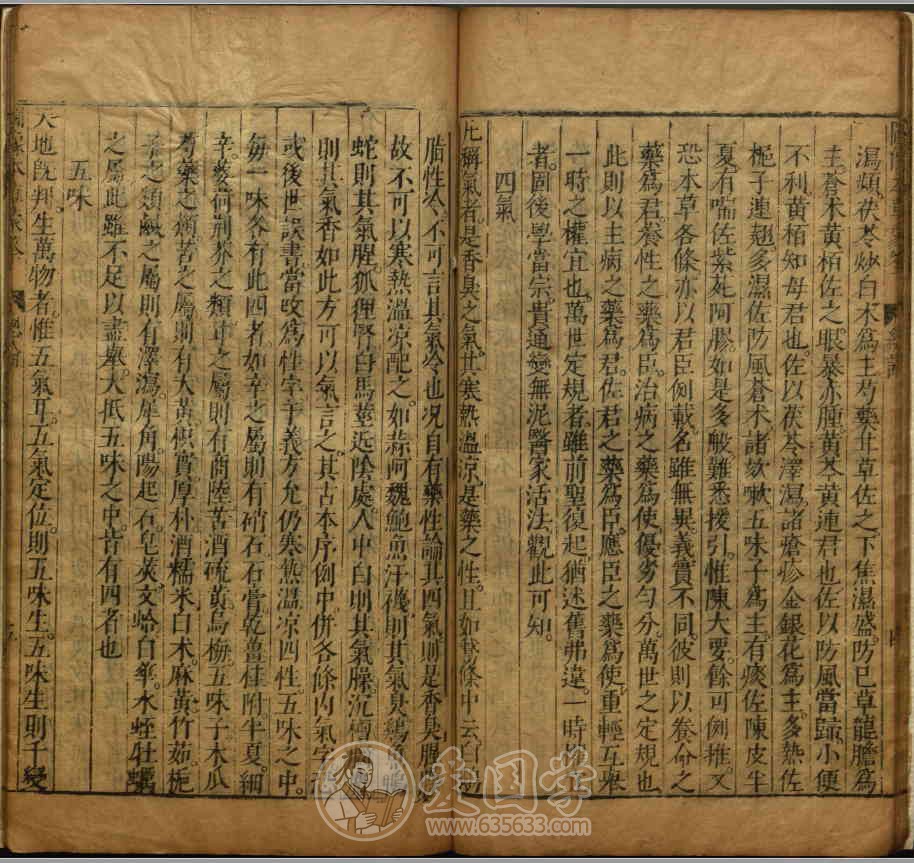 瀉頻茯苓炒白朮爲主芍藥甘草佐之下焦濕盛防巳草龍膽爲
主蒼朮黃栢佐之眼暴赤腫黃芩黃連君也佐以防風當歸小便
不利黃栢知母君也佐以茯苓澤瀉諸瘡疹金銀花爲主多熱佐
梔子連翹多濕佐防風蒼朮諸欬嗽五味子爲主有痰佐陳皮半
夏有喘佐紫菀阿膠如是多般難悉援引惟陳大要餘可例推又
恐本草各條亦以君臣例載名雖無異義實不同彼則以養命之
藥爲君養性之藥爲臣治病之藥爲使優劣勻分萬世之定規也
此則以主病之藥爲君佐君之藥爲臣應臣之藥爲使重輕互舉
一時之權宜也萬世定規者雖前聖復起猶述舊弗違一時權宜
者固後學當宗貴通變無泥醫家活法觀此可知
四氣
凡稱氣者是香臭之氣其寒熱溫涼是藥之性且如某條中云白鵞
脂性冷不可言其氣冷也況自有藥性論其四氣則是香臭腥臊
故不可以寒熱溫涼配之如蒜阿魏鮑魚汗襪則其氣臭雞魚鴨
蛇則其氣腥狐狸腎白馬莖近陰處人中白則其氣臊沉檀
則其氣香如此方可以氣言之其古本序例中併各條內氣字恐
或後世誤書當改爲性字于義方允仍寒熱溫涼四性五味之中
每一味各有此四者如辛之屬則有硝石石膏乾薑桂附半夏細
辛薄荷荆芥之類甘之屬則有商陸苦酒硫黃烏梅五味子木瓜
芍藥之類苦之屬則有大黃枳實厚朴酒糯米白朮麻黃竹茹梔
子之類鹹之屬則有澤瀉犀角陽起石皂莢文蛤白華水蛭牡蠣
之屬此雖不足以盡舉大抵五味之中皆有四者也
五味
天地旣判生萬物者惟五氣耳五氣定位則五味生五味生則千變
壹国学
www.635633.com